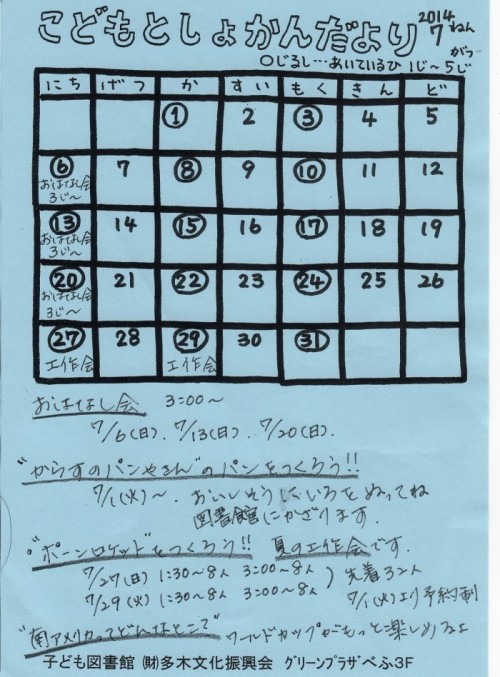 こどもとしょかんだより 2014 7 ねん がつ
○じるし…あいているひ 1じ～5じ
にち げつ か すい もく きん ど
① 2 ③ 4 5
⑥ 7 ⑧ 9 ⑩ 11 12
おはなし会
3じ～
⑬ 14 ⑮ 16 ⑰ 18 19
おはなし会
3じ～
⑳ 21 ㉒ 23 ㉔ 25 26
おはなし会
3じ～
㉗ 28 ㉙ 30 ㉛
工作会 工作会
おはなし会 3:00～
7/6(日). 7/13(日). 7/20(日).
"からすのパンやさん"のパンをつくろう!!
7/1(火)～. おいしそうにいろをぬってね
図書館にかざります.
"ポーンロケット"をつくろう!! 夏の工作会です.
7/27(日) 1:30～8人 3:00～8人
7/29(火) 1:30～8人 3:00～8人 ) 先着32人
7/1(火)より予約制
"南アメリカってどんなとこ?" ワールドカップがもっと楽しめるよ
子ども図書館 ㈶多木文化振興会 グリーンプラザべふ3F